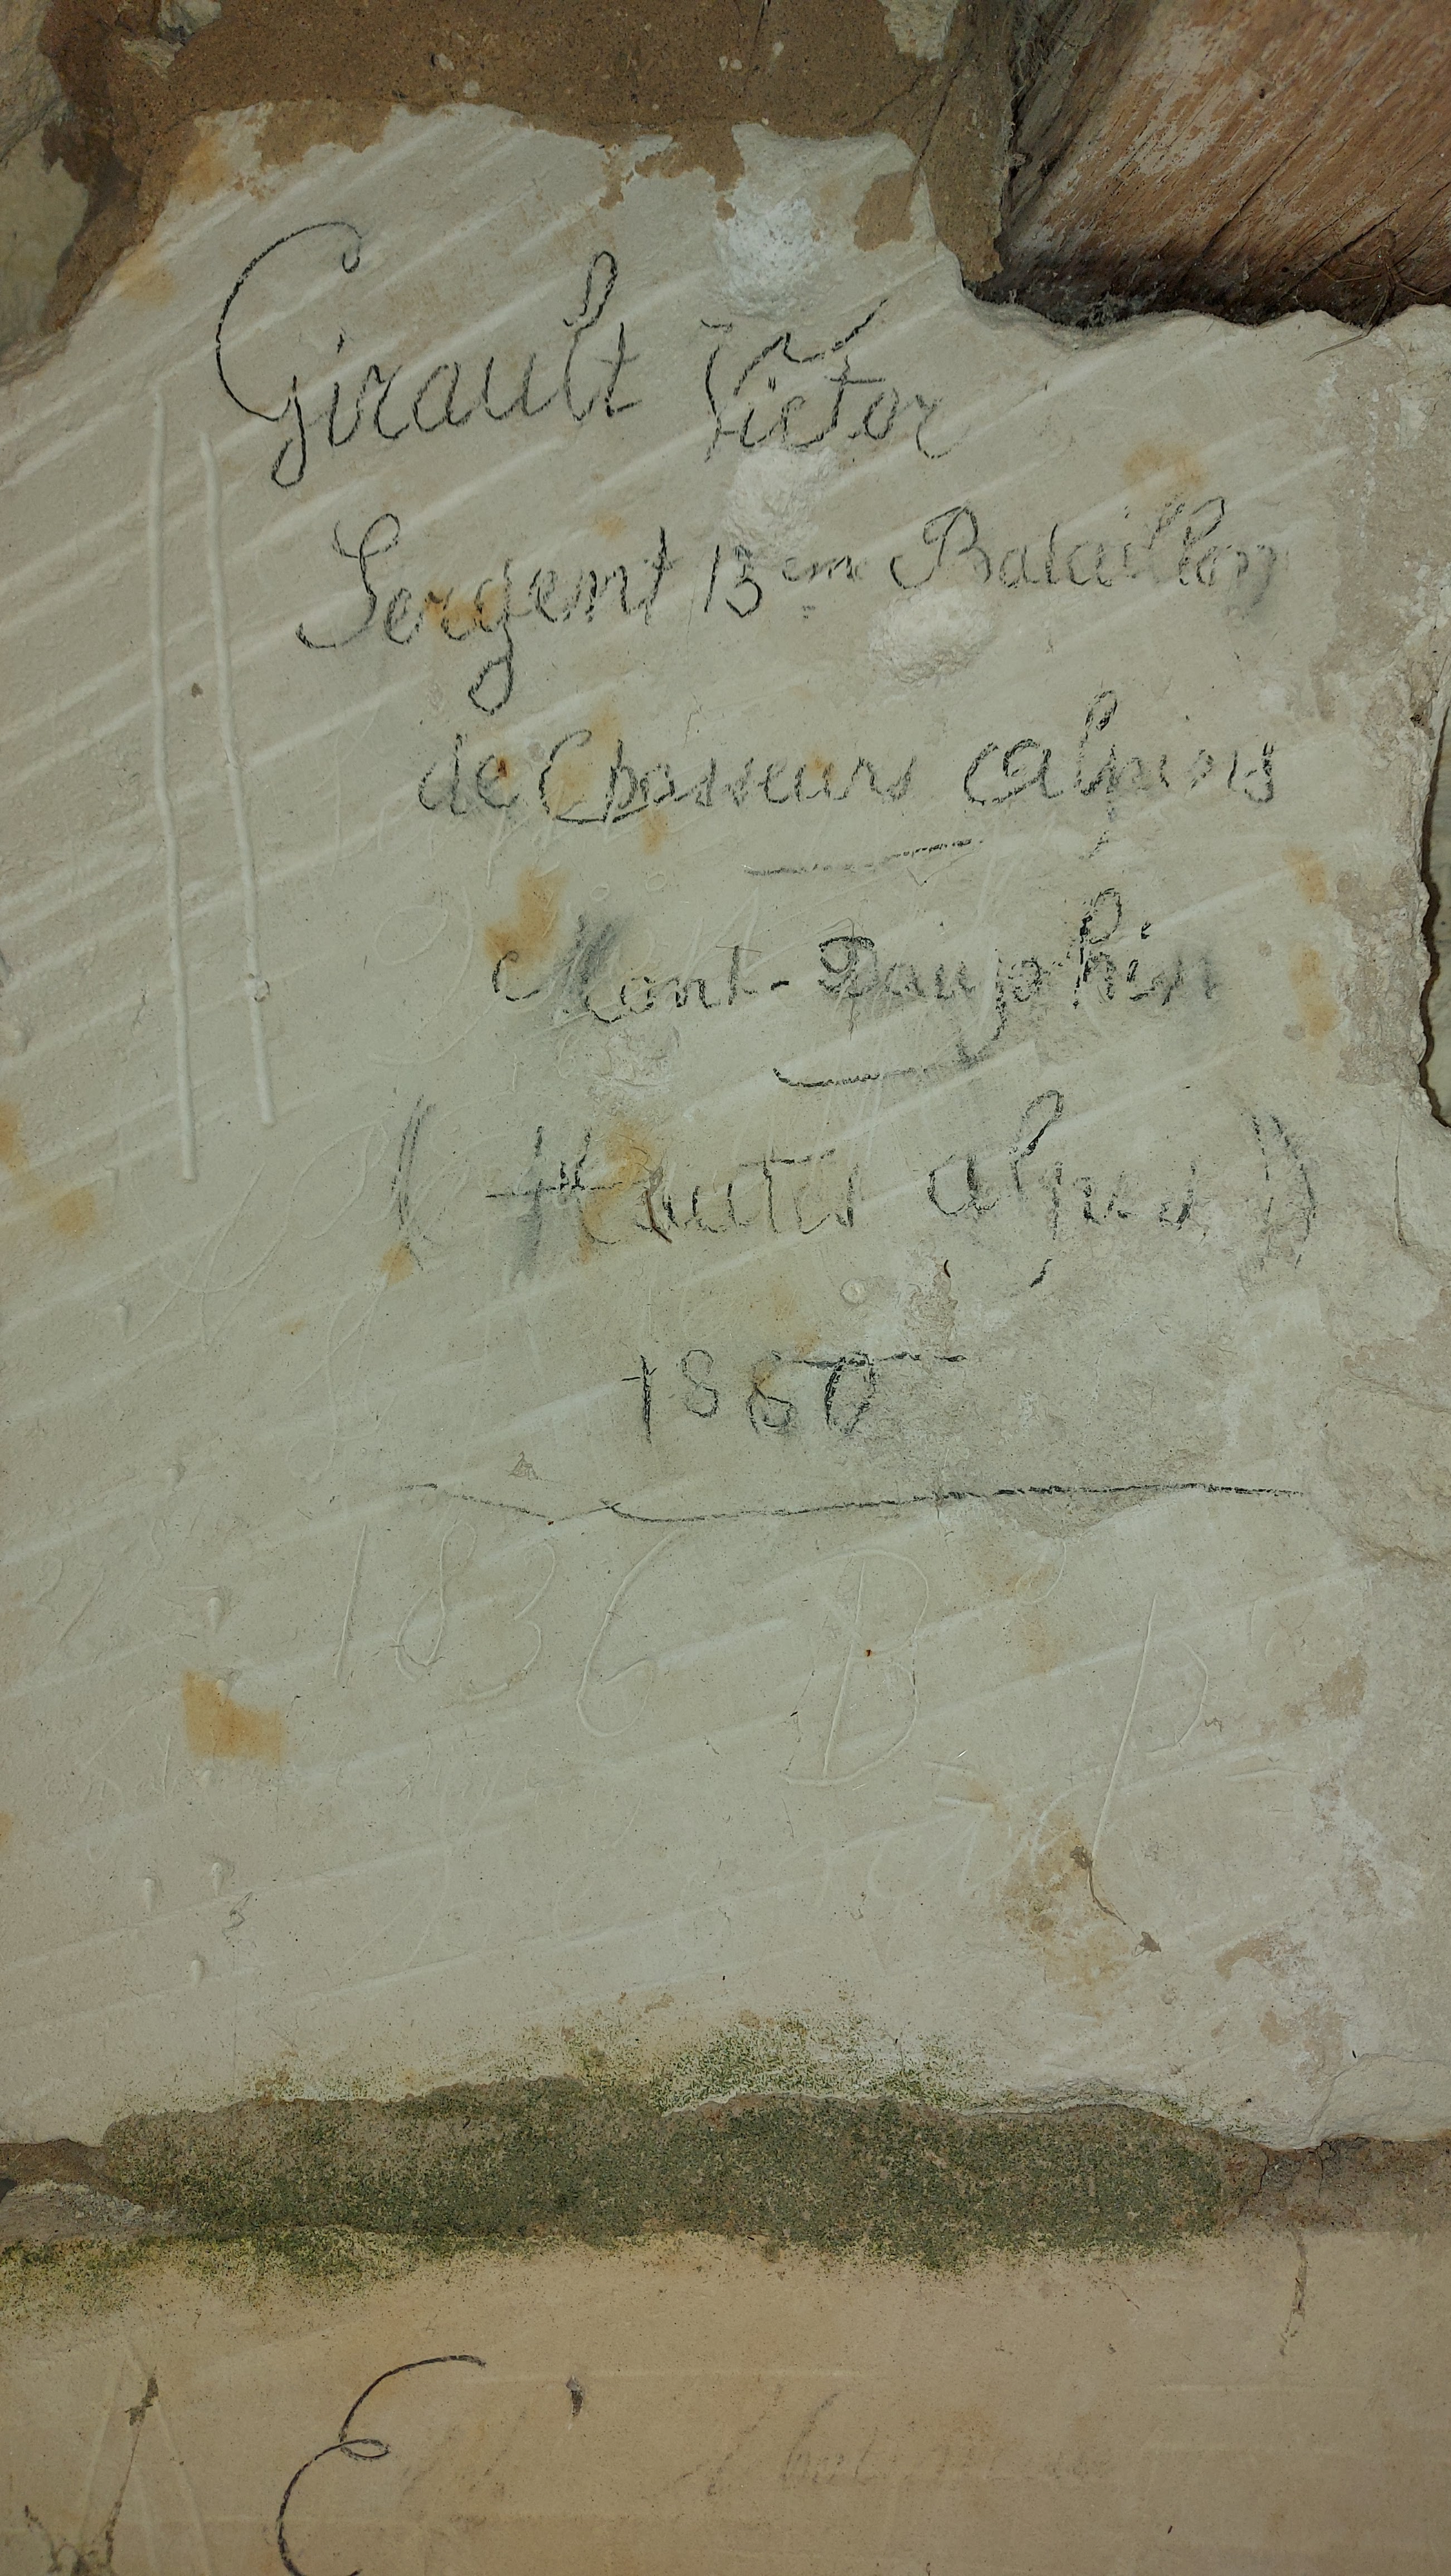 Girault Victor
Sergent 13em Bataillon
de Chasseurs alpins
Mont-Dauphin
(Hautes alpes)
1880
1836 B p